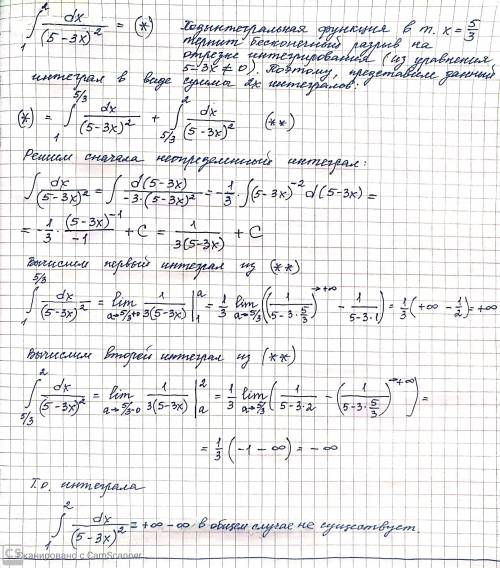 ∫₁² dx/(5-3x)² = (*) Подинтегральная функция в т. x = 5/3
терпит бесконечный разрыв на
отрезке интегрирования (из уравнения
5-3x ≠ 0). Поэтому, представим данный
интеграл в виде суммы 2х интегралов:
(*) = ∫₁^{5/3} dx/(5-3x)² + ∫_{5/3}^2 dx/(5-3x)² (**)
Решим сначала неопределенный интеграл:
∫ dx/(5-3x)² = ∫ d(5-3x)/(-3·(5-3x)²) = -1/3 ∫ (5-3x)⁻² d(5-3x) =
= -1/3 · (5-3x)⁻¹/-1 + C = 1/(3(5-3x)) + C
Вычислим первый интеграл из (**)
∫₁^{5/3} dx/(5-3x)² = lim_{a→5/3+0} 1/(3(5-3x)) |₁^a = 1/3 lim_{a→5/3} ((1/(5-3·5/3))^{→+∞} - 1/(5-3·1)) = 1/3 (+∞ - 1/2) = +∞
Вычислим второй интеграл из (**)
∫_{5/3}^2 dx/(5-3x)² = lim_{a→5/3-0} 1/(3(5-3x)) |_a^2 = 1/3 lim_{a→5/3} (1/(5-3·2) - (1/(5-3·5/3))^{→+∞}) =
= 1/3 (-1 - ∞) = -∞
Т.о. интеграла
∫₁² dx/(5-3x)² = +∞ -∞ в общем случае не существует.
CS Сканировано с CamScanner